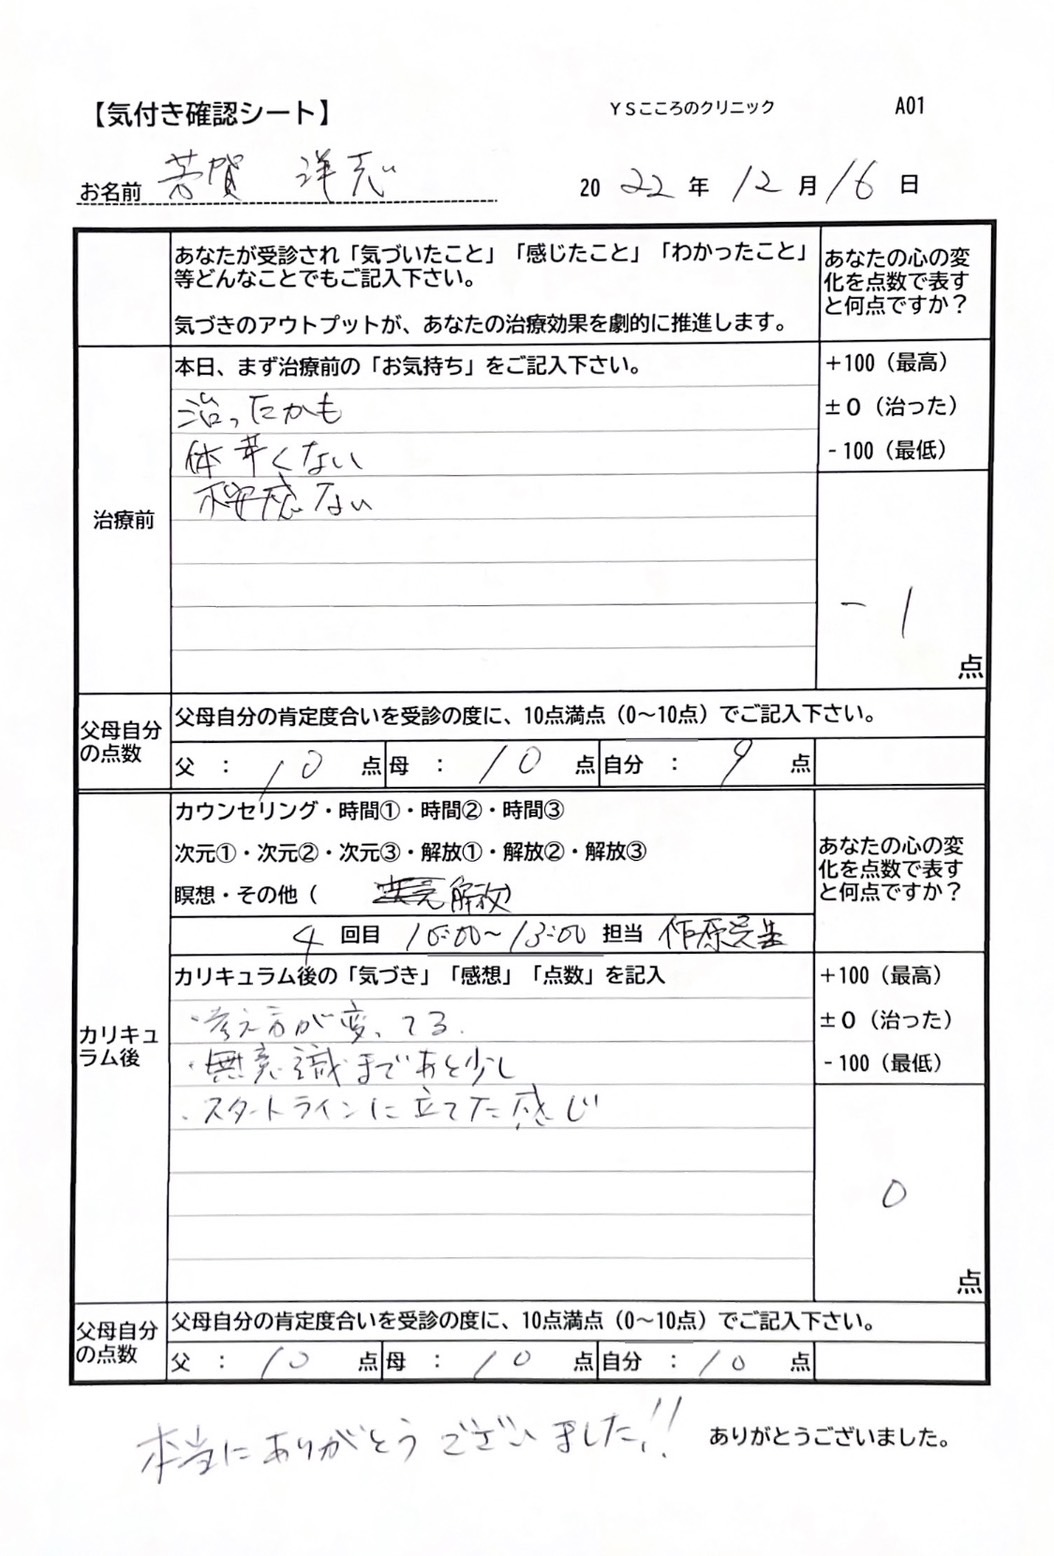 【気付き確認シート】 YSこころのクリニック A01
お名前 芳賀 洋志 20 22 年 12 月 16 日
あなたが受診され「気づいたこと」「感じたこと」「わかったこと」
等どんなことでもご記入下さい。
気づきのアウトプットが、あなたの治療効果を劇的に推進します。
あなたの心の変
化を点数で表す
と何点ですか？
治療前
本日、まず治療前の「お気持ち」をご記入下さい。
治ったかも
体辛くない
不安感ない
+100（最高）
±0（治った）
-100（最低）
-1
点
父母自分
の点数
父母自分の肯定度合いを受診の度に、10点満点（0～10点）でご記入下さい。
父 ： 10 点 母 ： 10 点 自分 ： 9 点
カリキュ
ラム後
カウンセリング・時間①・時間②・時間③
次元①・次元②・次元③・解放①・解放②・解放③
瞑想・その他（ 解放）
4 回目 10:00～13:00 担当
あなたの心の変
化を点数で表す
と何点ですか？
カリキュラム後の「気づき」「感想」「点数」を記入
・考え方が変ってる.
・無意識まであと少し
・スタートラインに立てた感じ
+100（最高）
±0（治った）
-100（最低）
0
点
父母自分
の点数
父母自分の肯定度合いを受診の度に、10点満点（0～10点）でご記入下さい。
父 ： 10 点 母 ： 10 点 自分 ： 10 点
本当にありがとうございました!!
ありがとうございました。